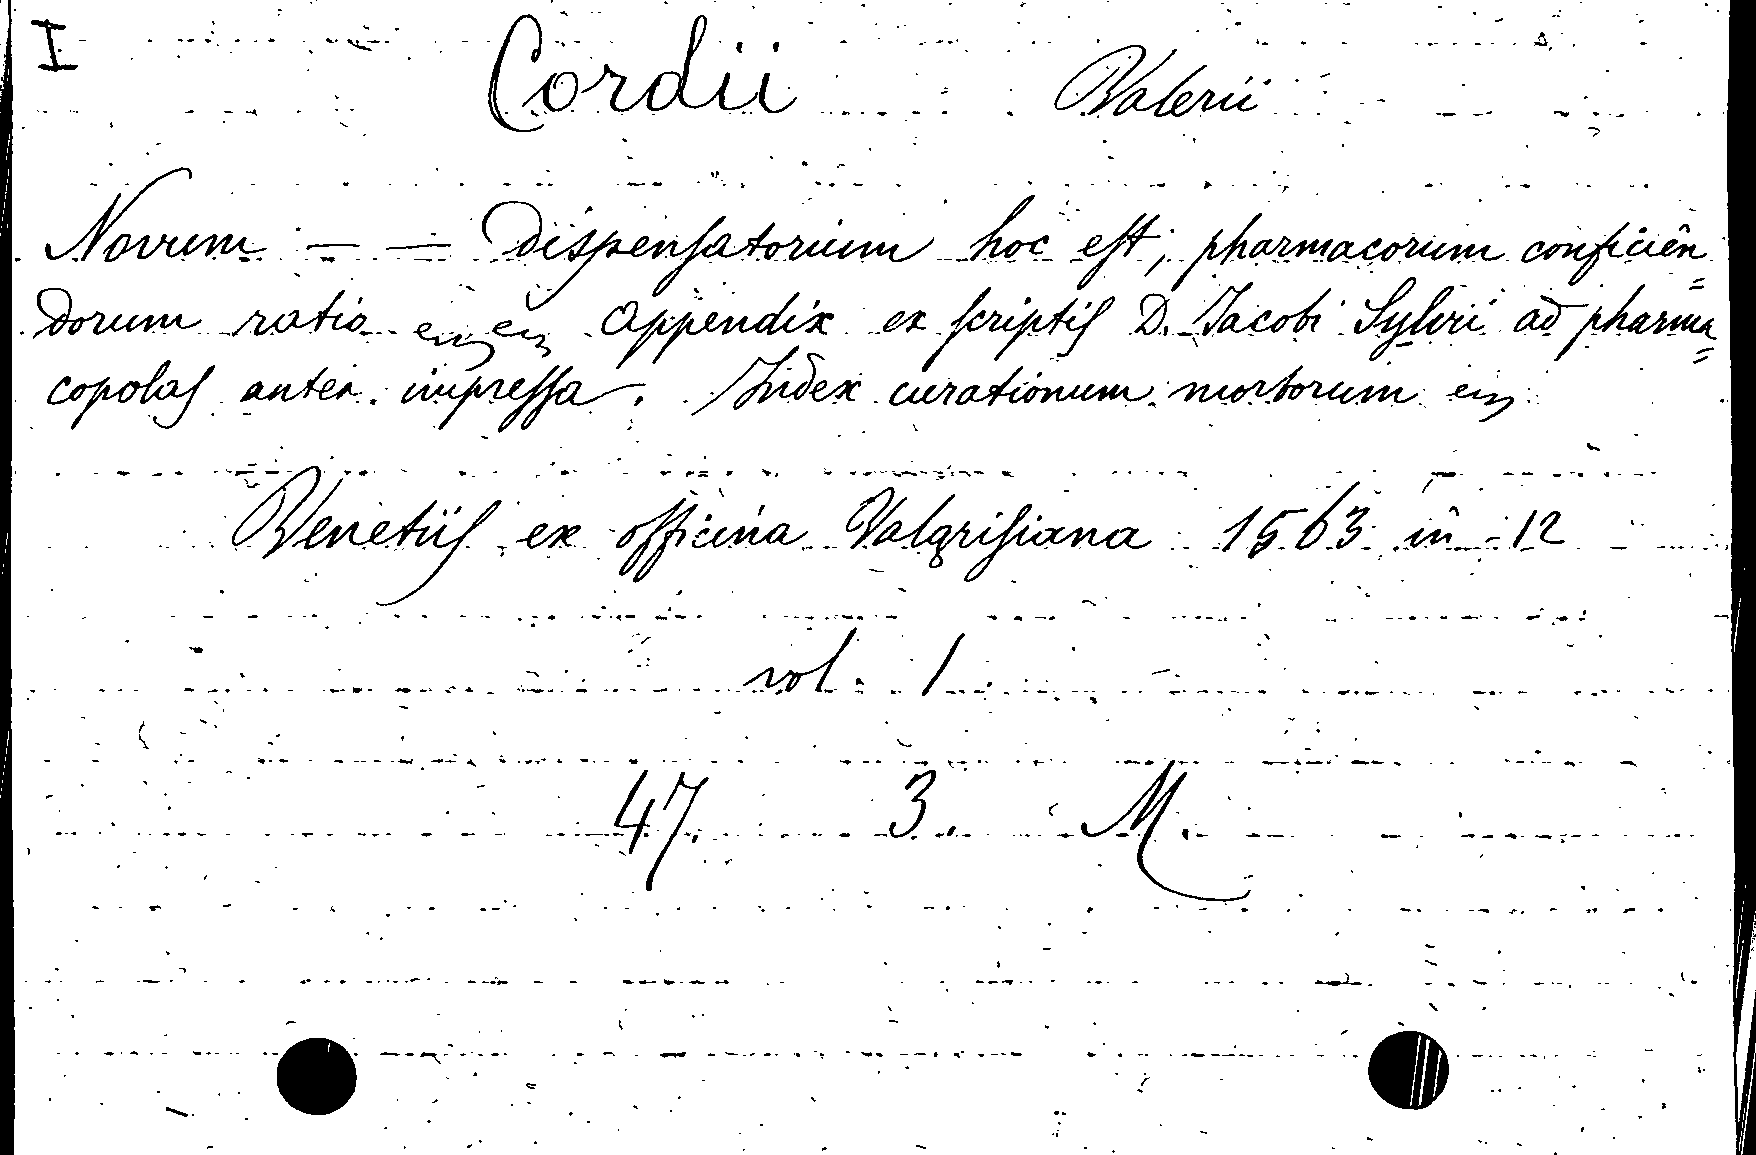 I
Cordii Valerii
Novum — — Dispensatorium hoc est, pharmacorum conficien=
dorum ratio Appendix ex scriptis D. Jacobi Sylvii ad pharma=
copolas antea impressa. Index curationum morborum
Venetiis ex officina Valgrisiana 1563 in 12
vol. 1
47. 3. M.